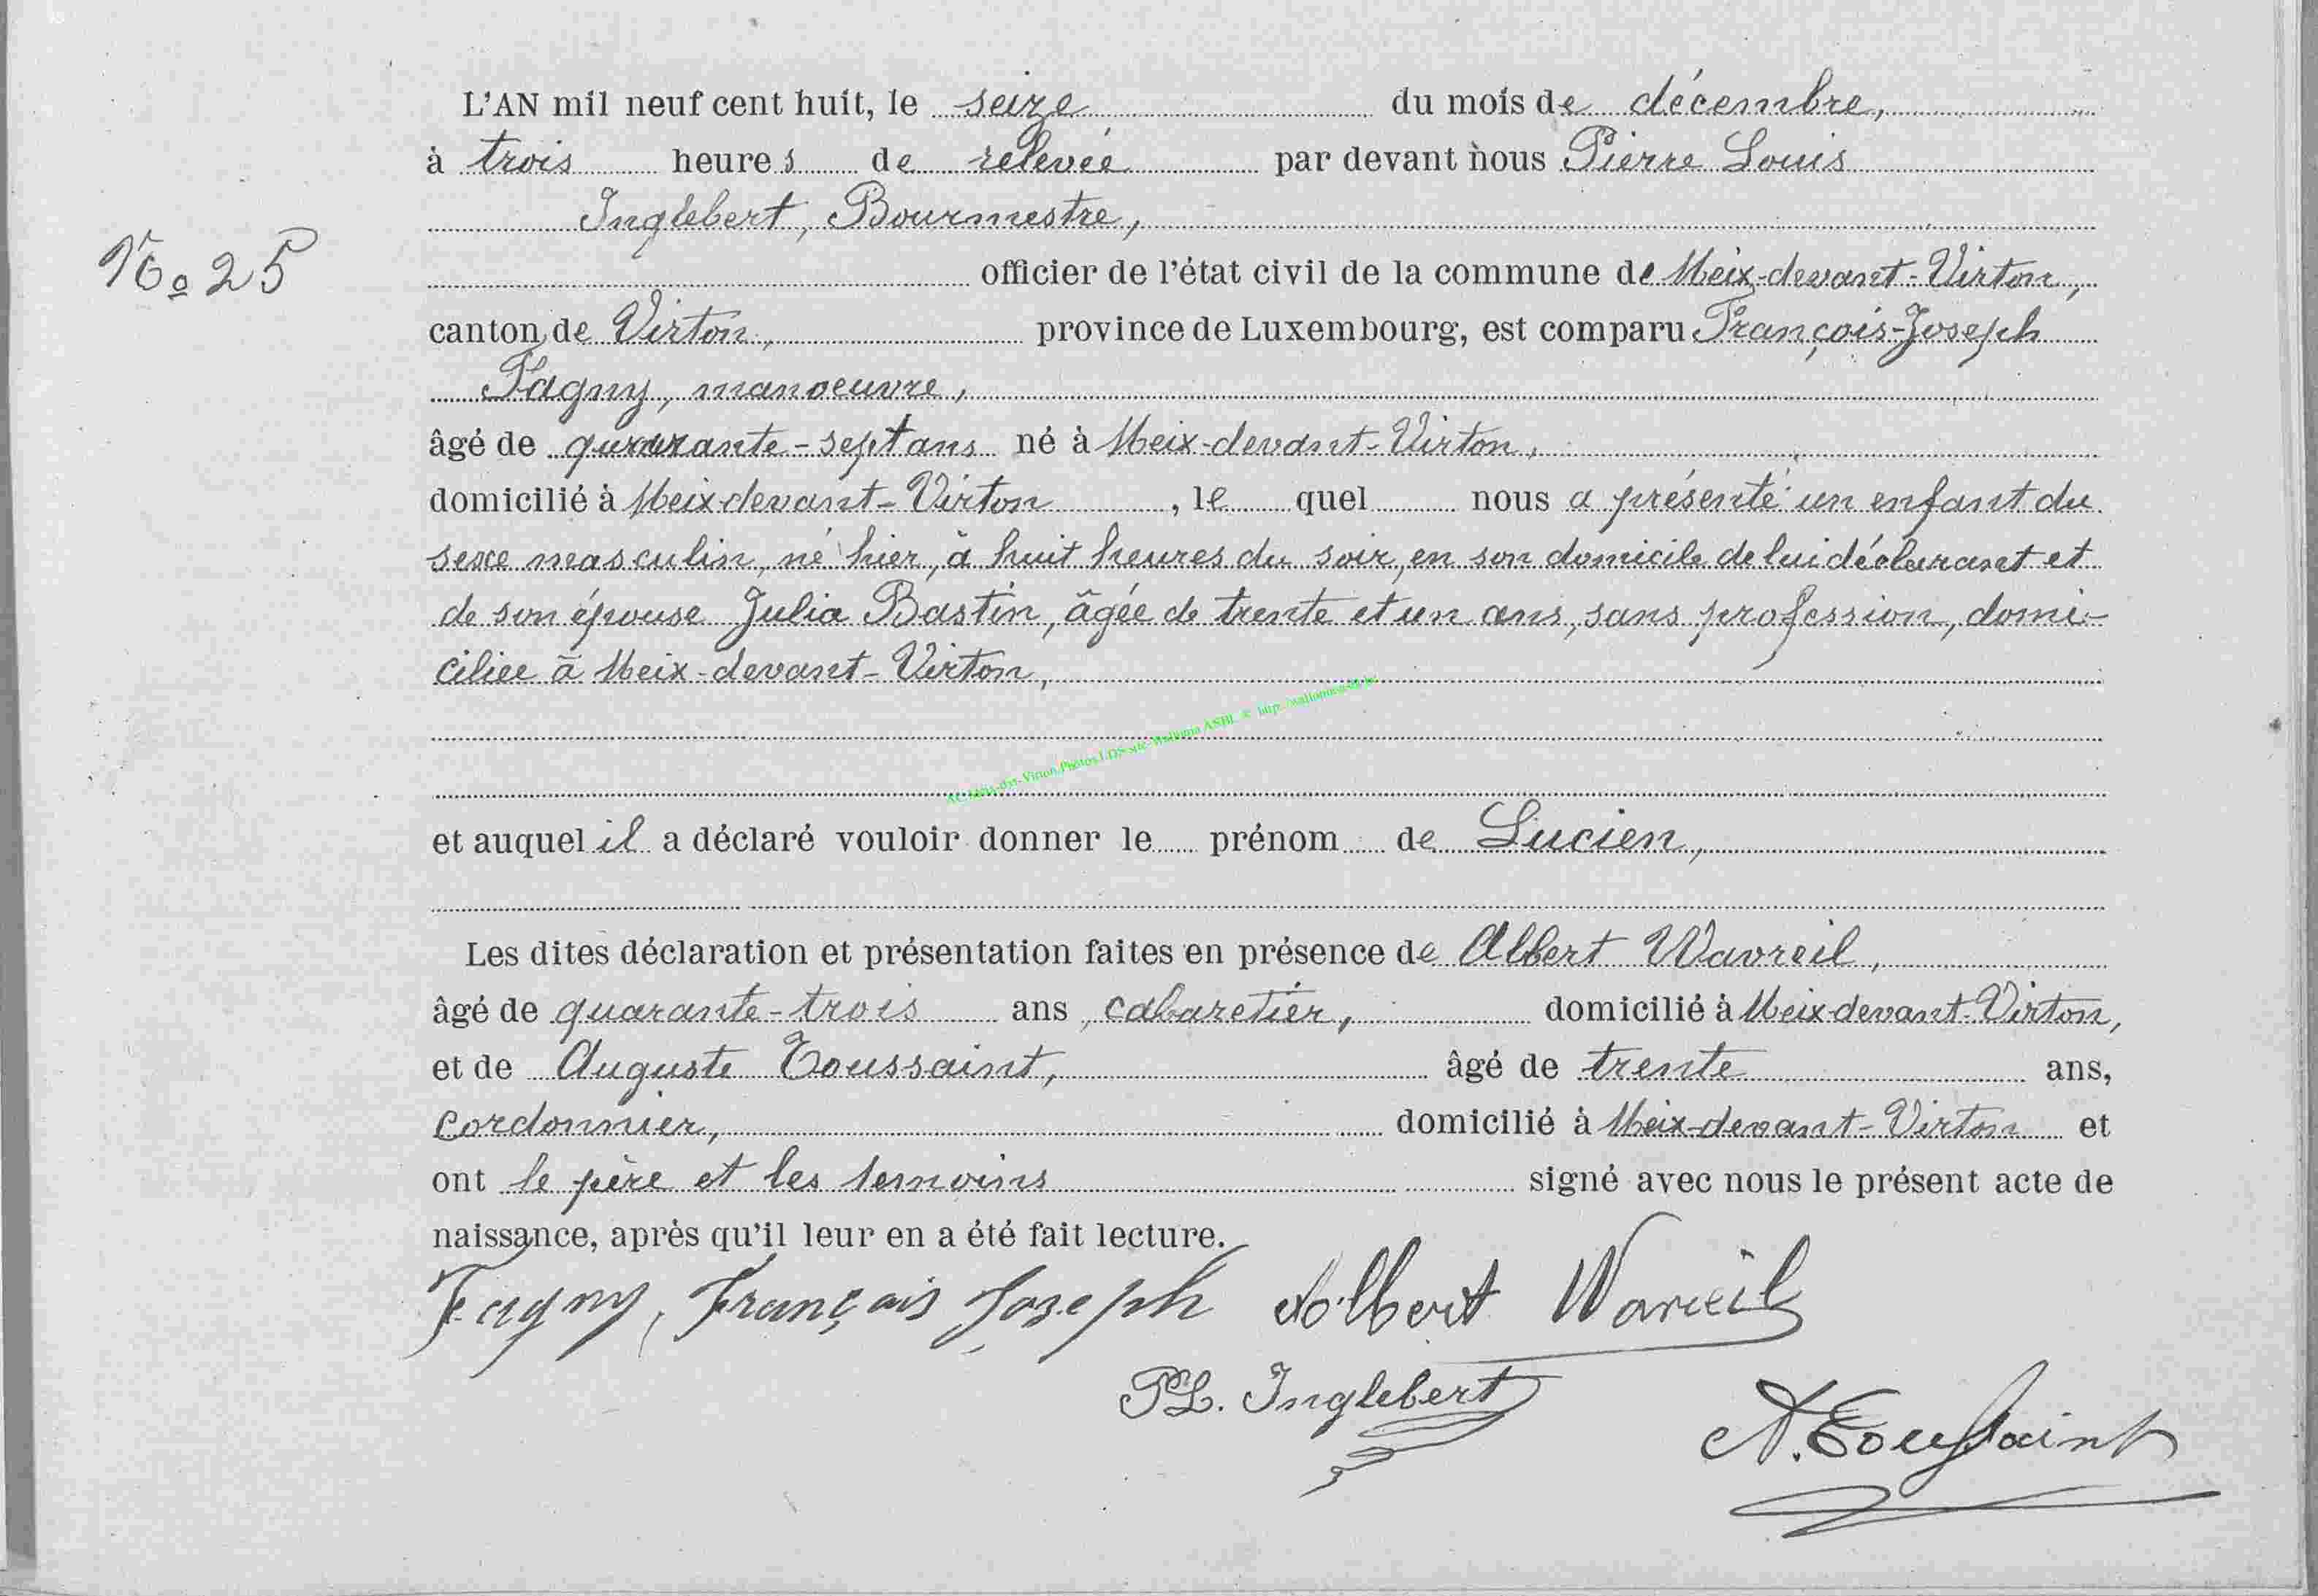 L'AN mil neuf cent huit, le seize du mois de décembre,
à trois heures de relevée par devant nous Pierre Louis
Inglebert, Bourmestre,
No 25
officier de l'état civil de la commune de Meix-devant-Virton,
canton de Virton, province de Luxembourg, est comparu François-Joseph
Fagny, manoeuvre,
âgé de quarante-sept ans né à Meix-devant-Virton,
domicilié à Meix-devant-Virton, le quel nous a présenté un enfant du
sexe masculin, né hier, à huit heures du soir, en son domicile de lui déclarant et
de son épouse Julia Bastin, âgée de trente et un ans, sans profession, domi-
ciliée à Meix-devant-Virton,
et auquel il a déclaré vouloir donner le prénom de Lucien,
Les dites déclaration et présentation faites en présence de Albert Wavreil,
âgé de quarante-trois ans, cabaretier, domicilié à Meix-devant-Virton,
et de Auguste Toussaint, âgé de trente ans,
cordonnier, domicilié à Meix-devant-Virton et
ont le père et les temoins signé avec nous le présent acte de
naissance, après qu'il leur en a été fait lecture.
Fagny, François Joseph Albert Wavreil
PL. Inglebert
A. Toussaint